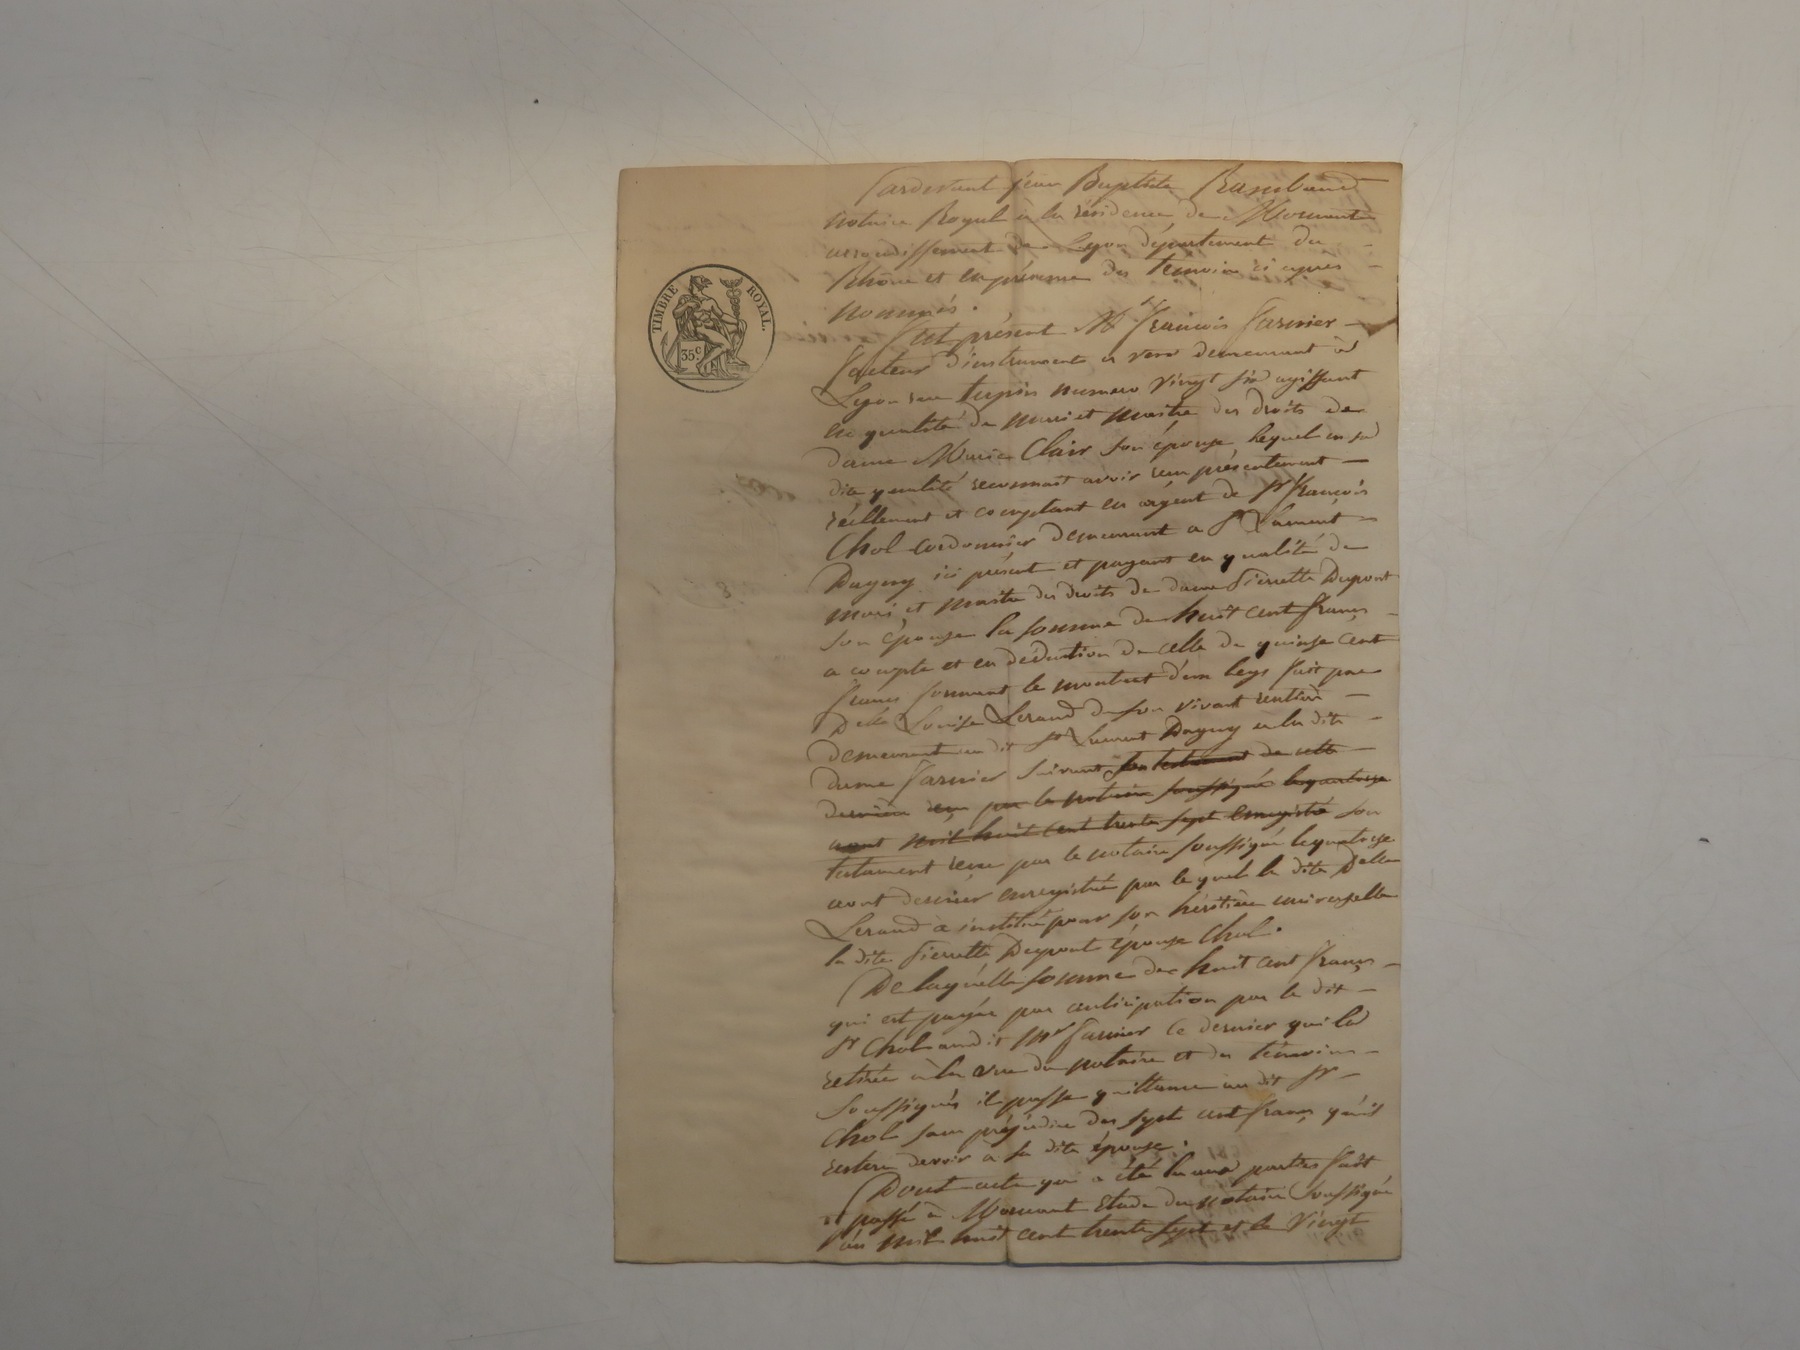 TIMBRE ROYAL.
35 c.
Pardevant jean Baptiste Rambaud
notaire Royal à la résidence de Mornant
arrondissement de Lyon département du
Rhône et en présence des témoins ci apres
nommés.
fut présent Mr françois farnier
facteur d'instruments a vent demeurant à
Lyon rue tupin numero vingt six agissant
en qualité de mari et maitre des droits de
dame Marie Clair son épouse lequel en sa
dite qualité reconnait avoir reçu présentement
réellement et comptant en argent de Sr françois
Chol cordonnier demeurant a St Laurent
Dagny ici présent et payant en qualité de
mari et maitre des droits de dame Pierrette Dupont
son épouse la somme de huit cent francs
a compte et en déduction de celle de quinze cent
francs formant le montant d'un legs fait par
Delle Louise Lerand de son vivant rentière
demeurant au dit St Laurent Dagny a la dite
dame farnier suivant son testament de cette
dernière reçu par le notaire soussigné le quatorze
aout mil huit cent trente sept enregistré son
testament reçu par le notaire soussigné le quatorze
aout dernier enregistré par lequel la dite Delle
Lerand a institué pour son héritière universelle
la dite Pierrette Dupont épouse Chol.
De laquelle somme de huit cent francs
qui est payée par anticipation par le dit
Sr Chol au dit Mr farnier ce dernier qui l'a
retirée à la vue du notaire et des témoins
soussignés il passe quittance au dit Sr
Chol sans préjudice des sept cent francs qu'il
restera devoir à sa dite épouse.
Dont acte qui a été lu aux parties fait
et passé à Mornant Etude du notaire soussigné
l'an mil huit cent trente sept et le vingt